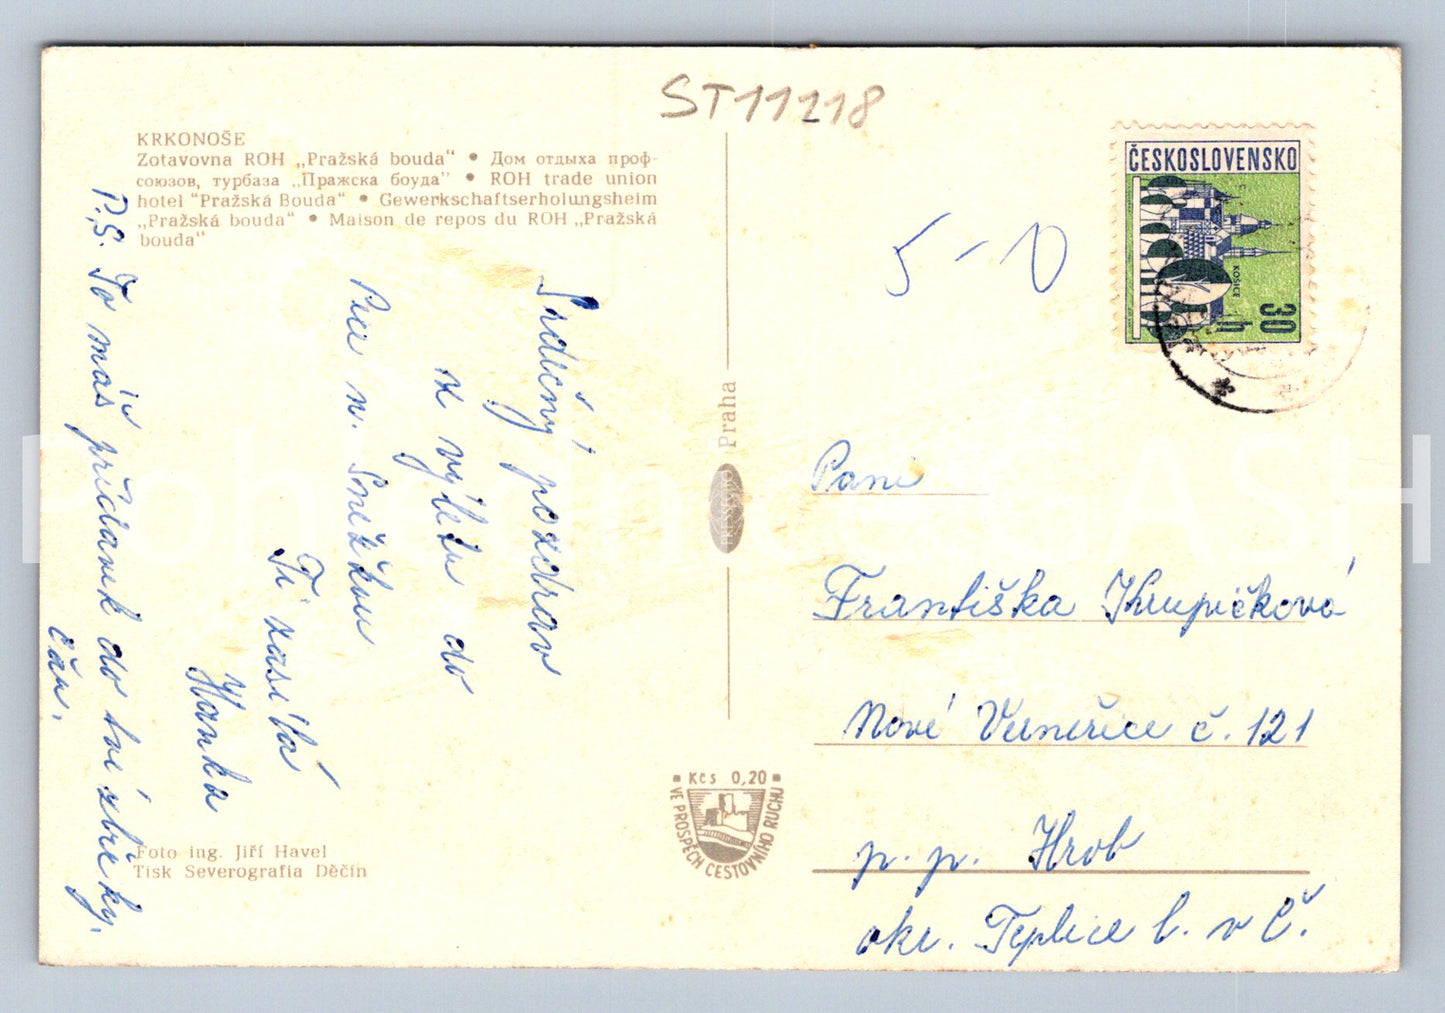 ST11218
KRKONOŠE
Zotavovna ROH „Pražská bouda“ • Дом отдыха проф-
союзов, турбаза „Пражска боуда“ • ROH trade union
hotel "Pražská Bouda" • Gewerkschaftserholungsheim
„Pražská bouda“ • Maison de repos du ROH „Pražská
bouda“
Srdečný pozdrav
z výletu do
Pece n. Sněžkou
Ti zasílá
Hanka
P.S. To máš přídavek do tvé sbírky.
čau.
Foto ing. Jiří Havel
Tisk Severografia Děčín
Praha
Kčs 0,20
VE PROSPĚCH CESTOVNÍHO RUCHU
5-0
ČESKOSLOVENSKO
KOŠICE
30 h
Paní
Františka Krupičková
Nové Verneřice č. 121
p. p. Hrob
okr. Teplice l. v Č.